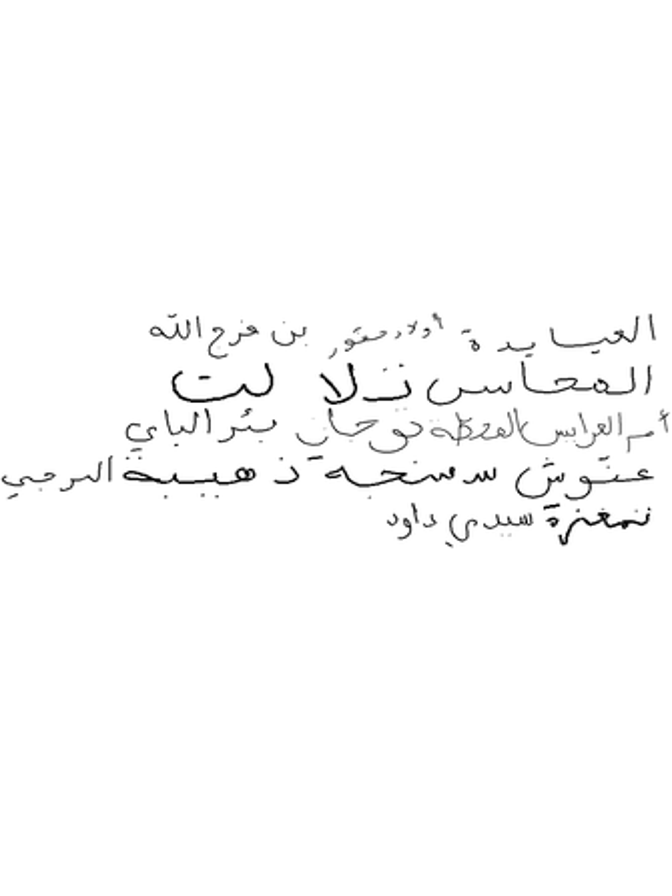 العيايدة أولاد حفوز بن فرج الله
المحاسن نزلا لت
أم العرايس المحطة بوجان بئر الباي
عتوش سسنجة ذهيبة البرجي
تمغزة سيدي داود